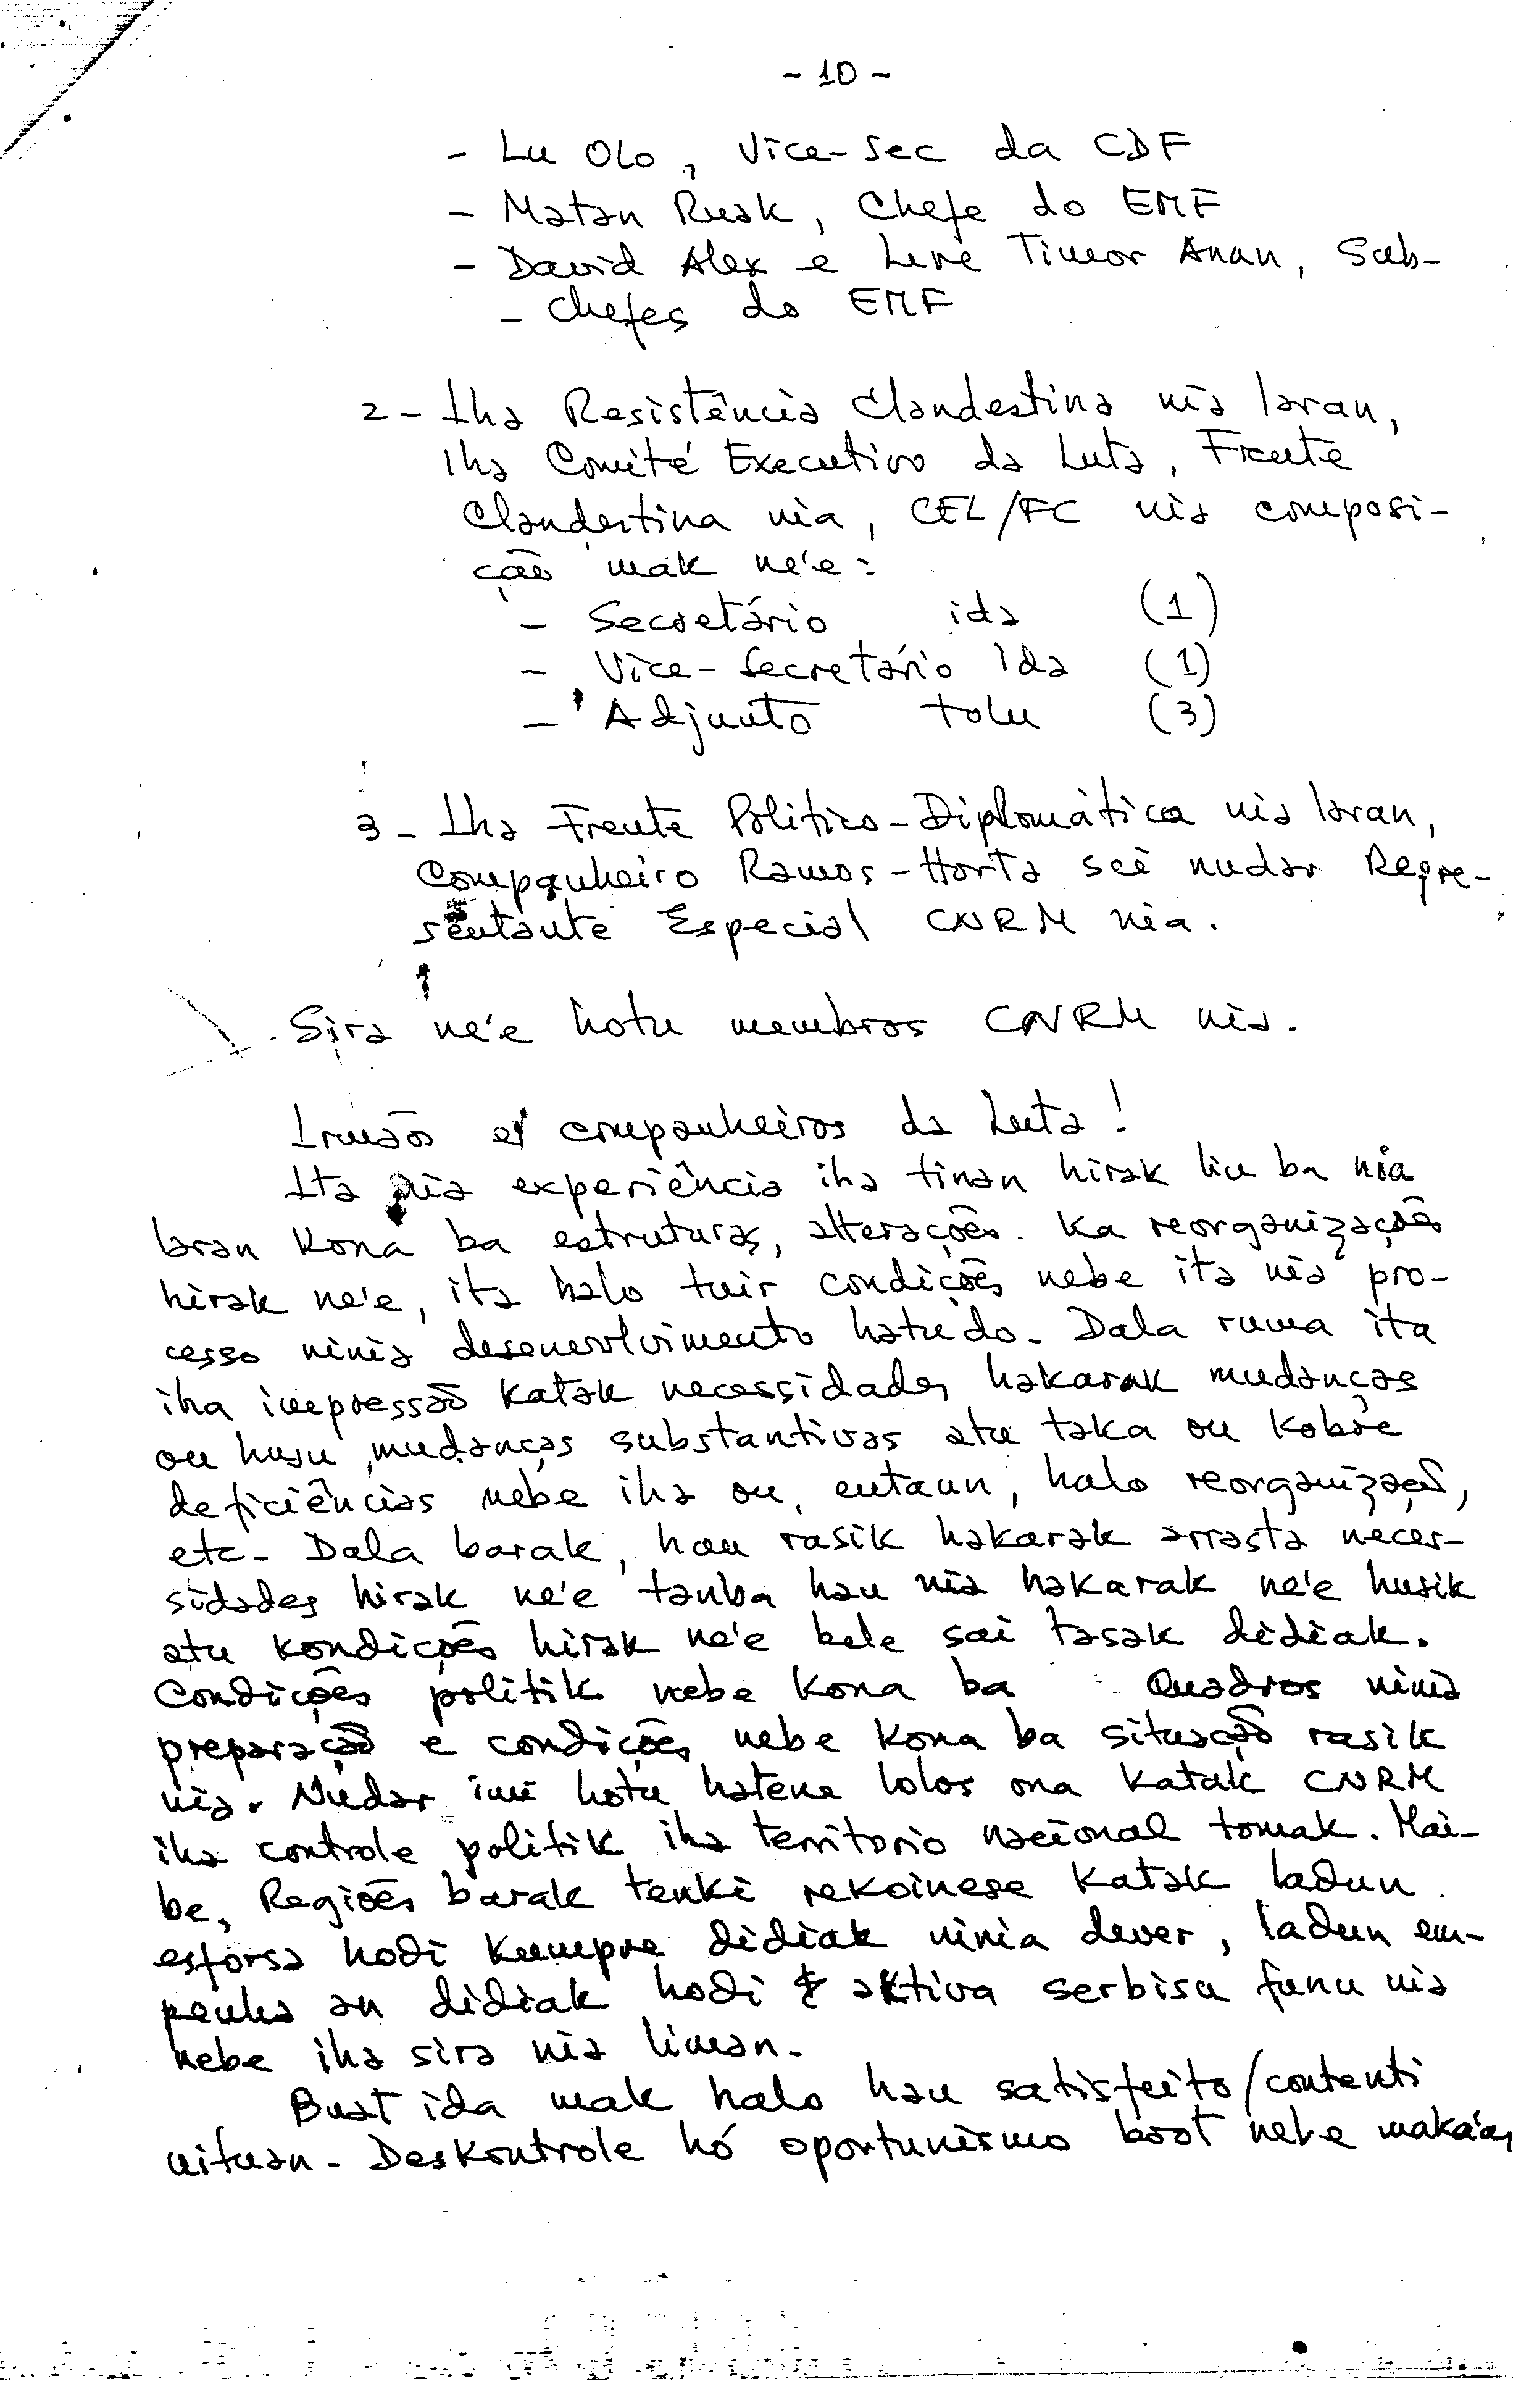 - 10 -
- Lu Olo, Vice-Sec da CDF
- Matan Ruak, Chefe do EMF
- David Alex e Lere Timor Anan, Sub-
- Chefes do EMF
2 - Iha Resistência Clandestina nia laran,
Iha Comité Executivo da Luta, Frente
Clandestina nia, CEL/FC nia composi-
ção mak ne'e:
- Secretário ida (1)
- Vice-Secretário ida (1)
- Adjunto tolu (3)
3 - Iha Frente Politico-Diplomàtica nia laran,
Companheiro Ramos-Horta sei nudar Repre-
sentante Especial CNRM nia.
Sira ne'e hotu membros CNRM nia.
Irmãos e companheiros da Luta!
Ita nia experiência iha tinan hirak liu ba nia
laran kona ba estruturas, alterações ka reorganizações
hirak ne'e, ita halo tuir condições nebe ita nia pro-
cesso ninia desenvolvimento hatudo. Dala ruma ita
iha impressão katak necessidades hakarak mudanças
ou husu mudanças substantivas atu taka ou kobre
deficiências nebe iha ou, entaun, halo reorganização,
etc. Dala barak, hau rasik hakarak arrasta neces-
sidades hirak ne'e tanba hau nia hakarak ne'e husik
atu kondições hirak ne'e bele sai tasak didiak.
Condições politik nebe kona ba Quadros ninia
preparação e condições nebe kona ba situação rasik
nia. Nudar imi hotu hatene lolos ona katak CNRM
iha controle politik iha territorio nacional tomak. Mai-
be, Regiões barak tenki rekoinese katak ladun
esforsa hodi kumpre didiak ninia dever, ladun em-
penha an didiak hodi aktiva serbisu funu nia
nebe iha sira nia liman.
Buat ida mak halo hau satisfeito/contenti
nituan. Deskontrole hó oportunismo boot nebe maka'as